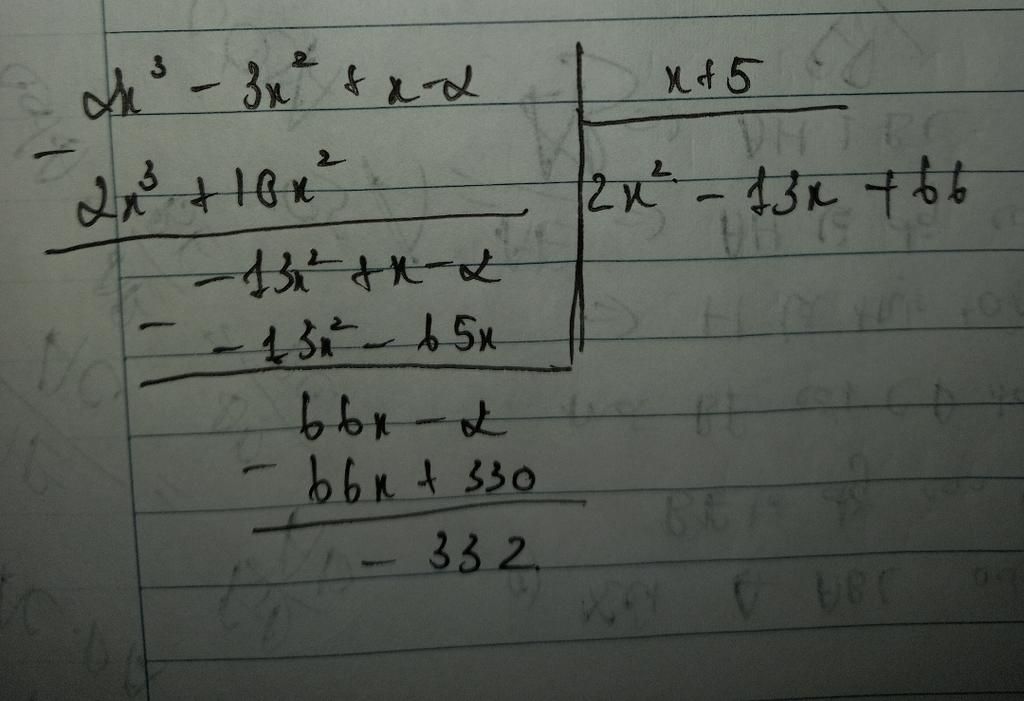 2x³ - 3x² + x - 2 | x + 5
- 2x³ + 10x² | 2x² - 13x + 66
- 13x² + x - 2
- - 13x² - 65x
66x - 2
- 66x + 330
- 332